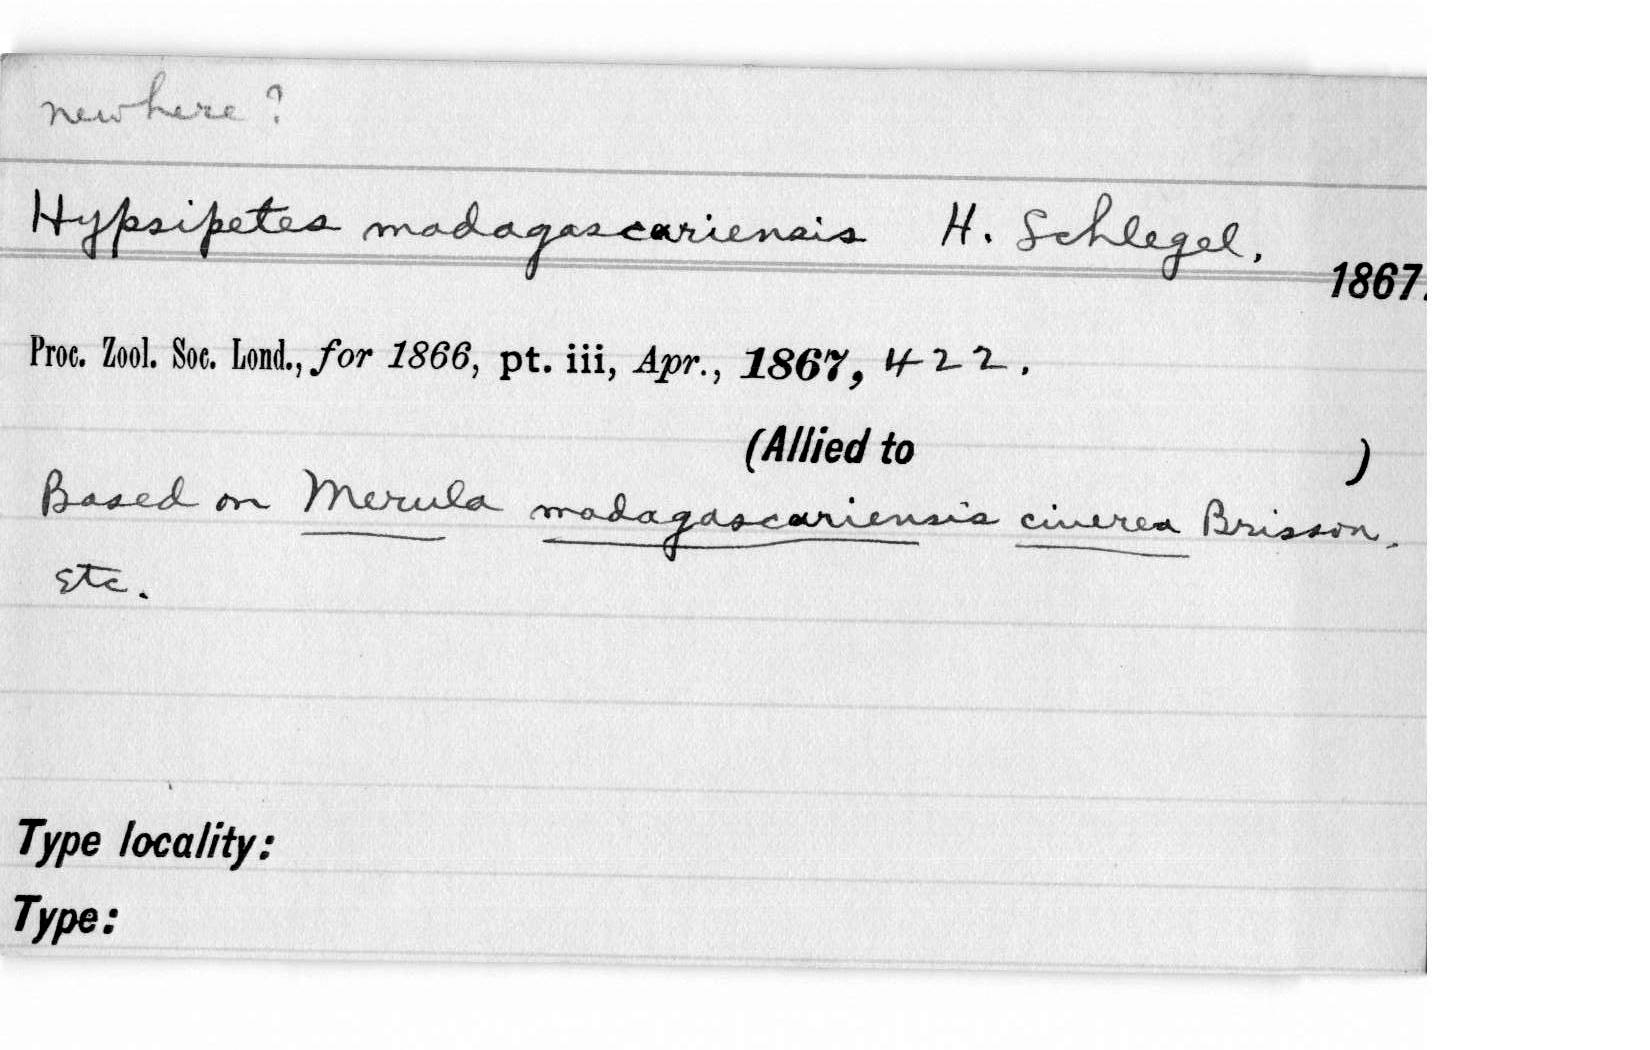 new here?
Hypsipetes madagascariensis H. Schlegel,
1867.
Proc. Zool. Soc. Lond., for 1866, pt. iii, Apr., 1867, 422.
(Allied to )
Based on Merula madagascariensis cinerea Brisson.
Etc.
Type locality:
Type: